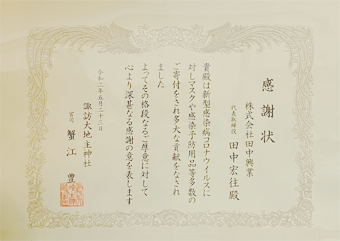 感謝状
株式会社田中興業
代表取締役
田中宏往殿
貴殿は新型感染病コロナウイルスに
対しマスクや感染予防用品等多数の
ご寄付をされ多大な貢献をなされ
ました
よってその格段なるご厚意に対して
心より深甚なる感謝の意を表します
令和二年五月二十三日
諏訪大地主神社
宮司 蟹江 豊